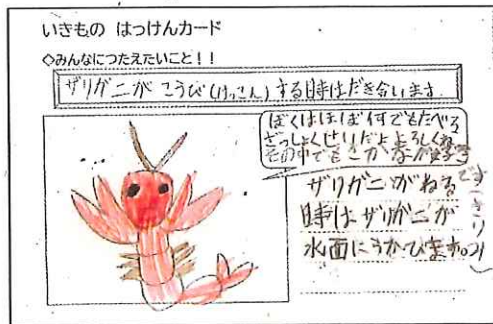 いきもの はっけんカード
◇みんなにつたえたいこと！！
ザリガニがこうび(けっこん)する時はだき合います。
ぼくはほぼ何でもたべる
ざっしょくせいだよよろしくね
その中でも
ザリガニがねる
時はザリガニが
水面にうかびます。